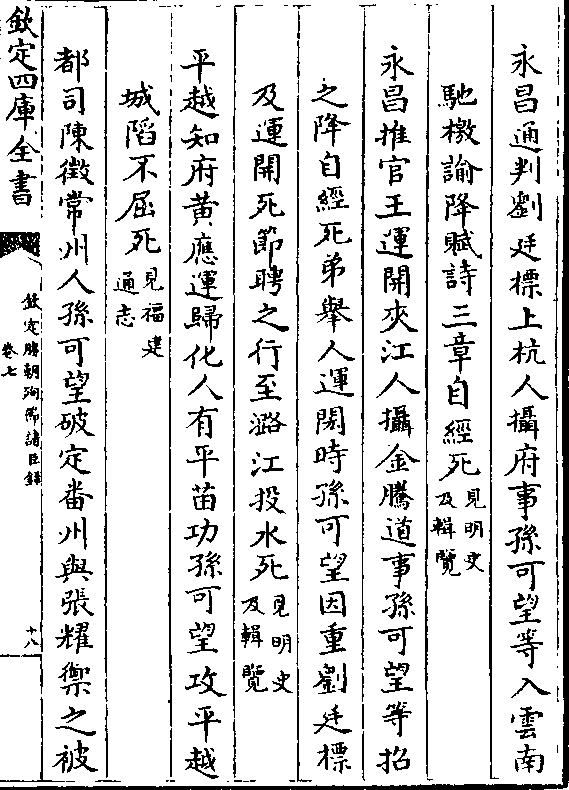 永昌通判劉廷標上杭人攝府事孫可望等入雲南
馳檄諭降賦詩三章自經死見明史
及輯覽
永昌推官王運開夾江人攝金騰道事孫可望等招
之降自經死弟舉人運閎時孫可望因重劉廷標
及運開死節聘之行至潞江投水死見明史
及輯覽
平越知府黃應運歸化人有平苗功孫可望攻平越
城陷不屈死見福建
通志
都司陳徵常州人孫可望破定番州與張耀禦之被
欽定四庫全書
欽定勝朝殉節諸臣錄
卷七
十八